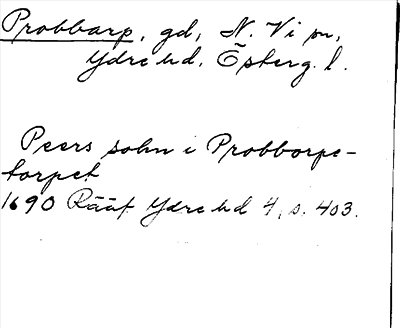 Probbarp, gd, N. Vi sn,
Ydre hd. Österg. l.
Peers sohn i Probborpe-
torpet
1690 Rääf Ydre hd 4, s. 403.